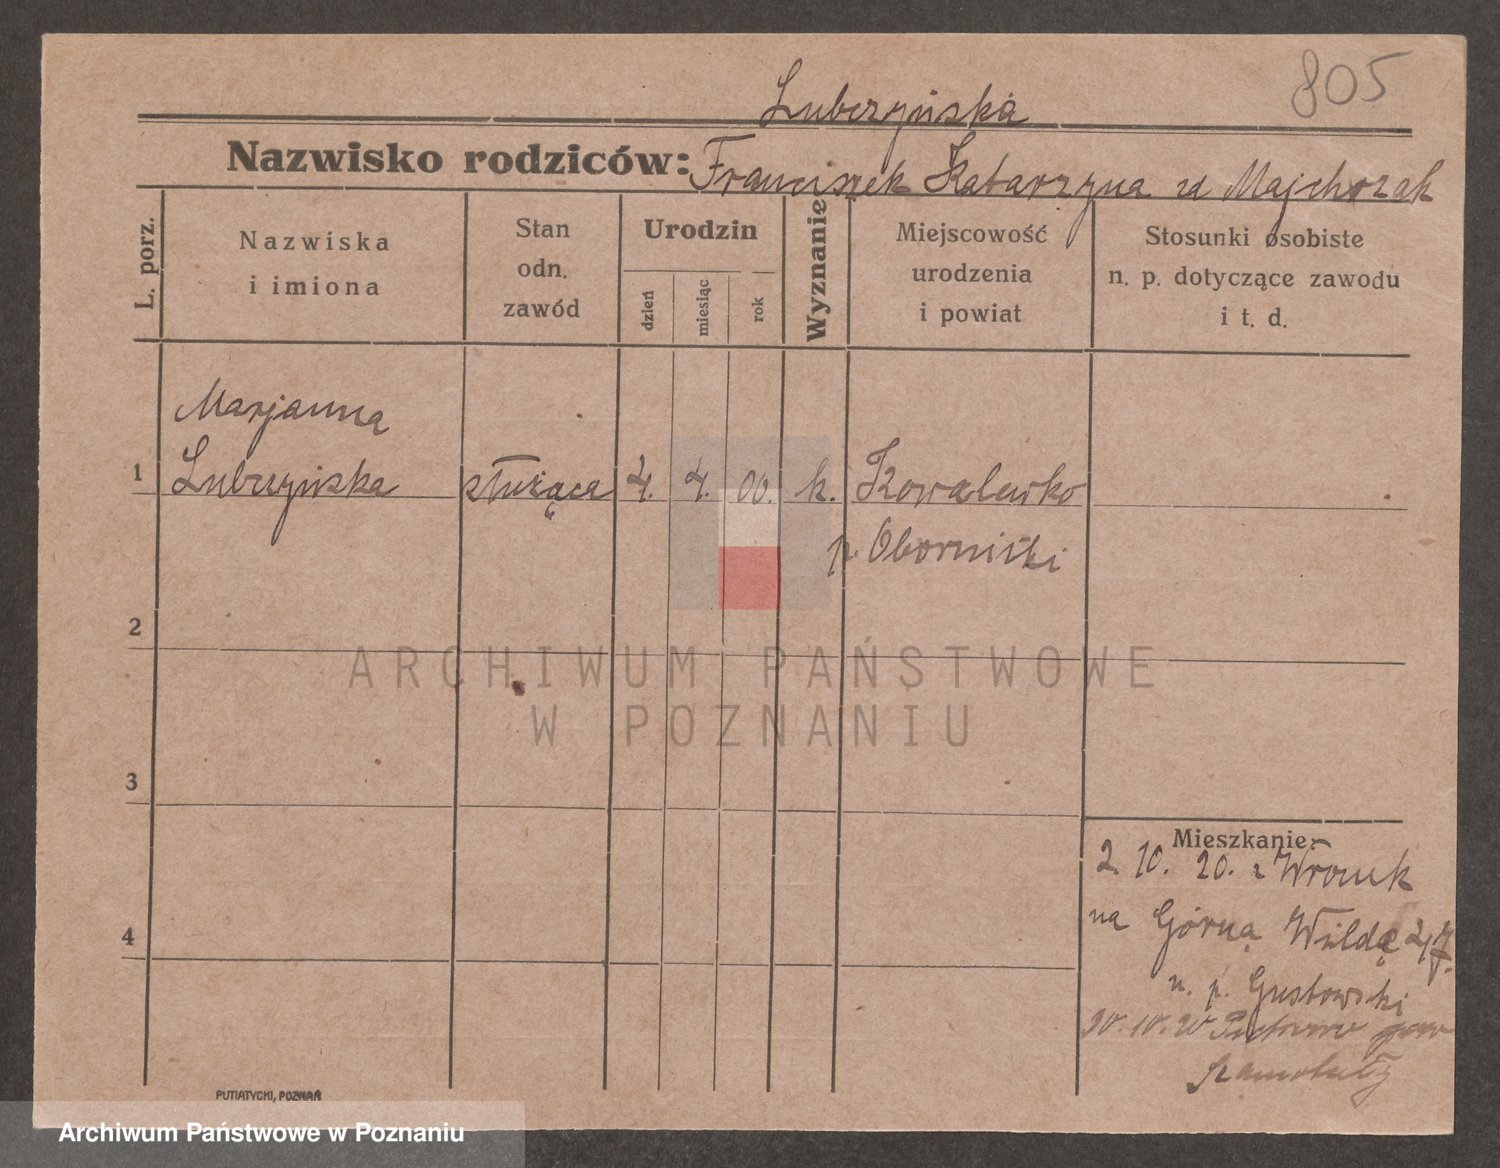 805
Lubczyńska
Nazwisko rodziców: Franciszek Katarzyna zd Majchrzak
L. porz.
Nazwiska
i imiona
Stan
odn.
zawód
Urodzin
dzień
miesiąc
rok
Wyznanie
Miejscowość
urodzenia
i powiat
Stosunki osobiste
n. p. dotyczące zawodu
i t. d.
Marjanna
1 Lubczyńska służąca 4. 4. 00. k. Kowalewko
p. Obornicki
2
3
4
Mieszkanie:
2. 10. 20. z Wronek
na Górną Wildę
u. p. Gustowski
szamotuły
PUTIATYCKI, POZNAŃ
ARCHIWUM PAŃSTWOWE
W POZNANIU
Archiwum Państwowe w Poznaniu